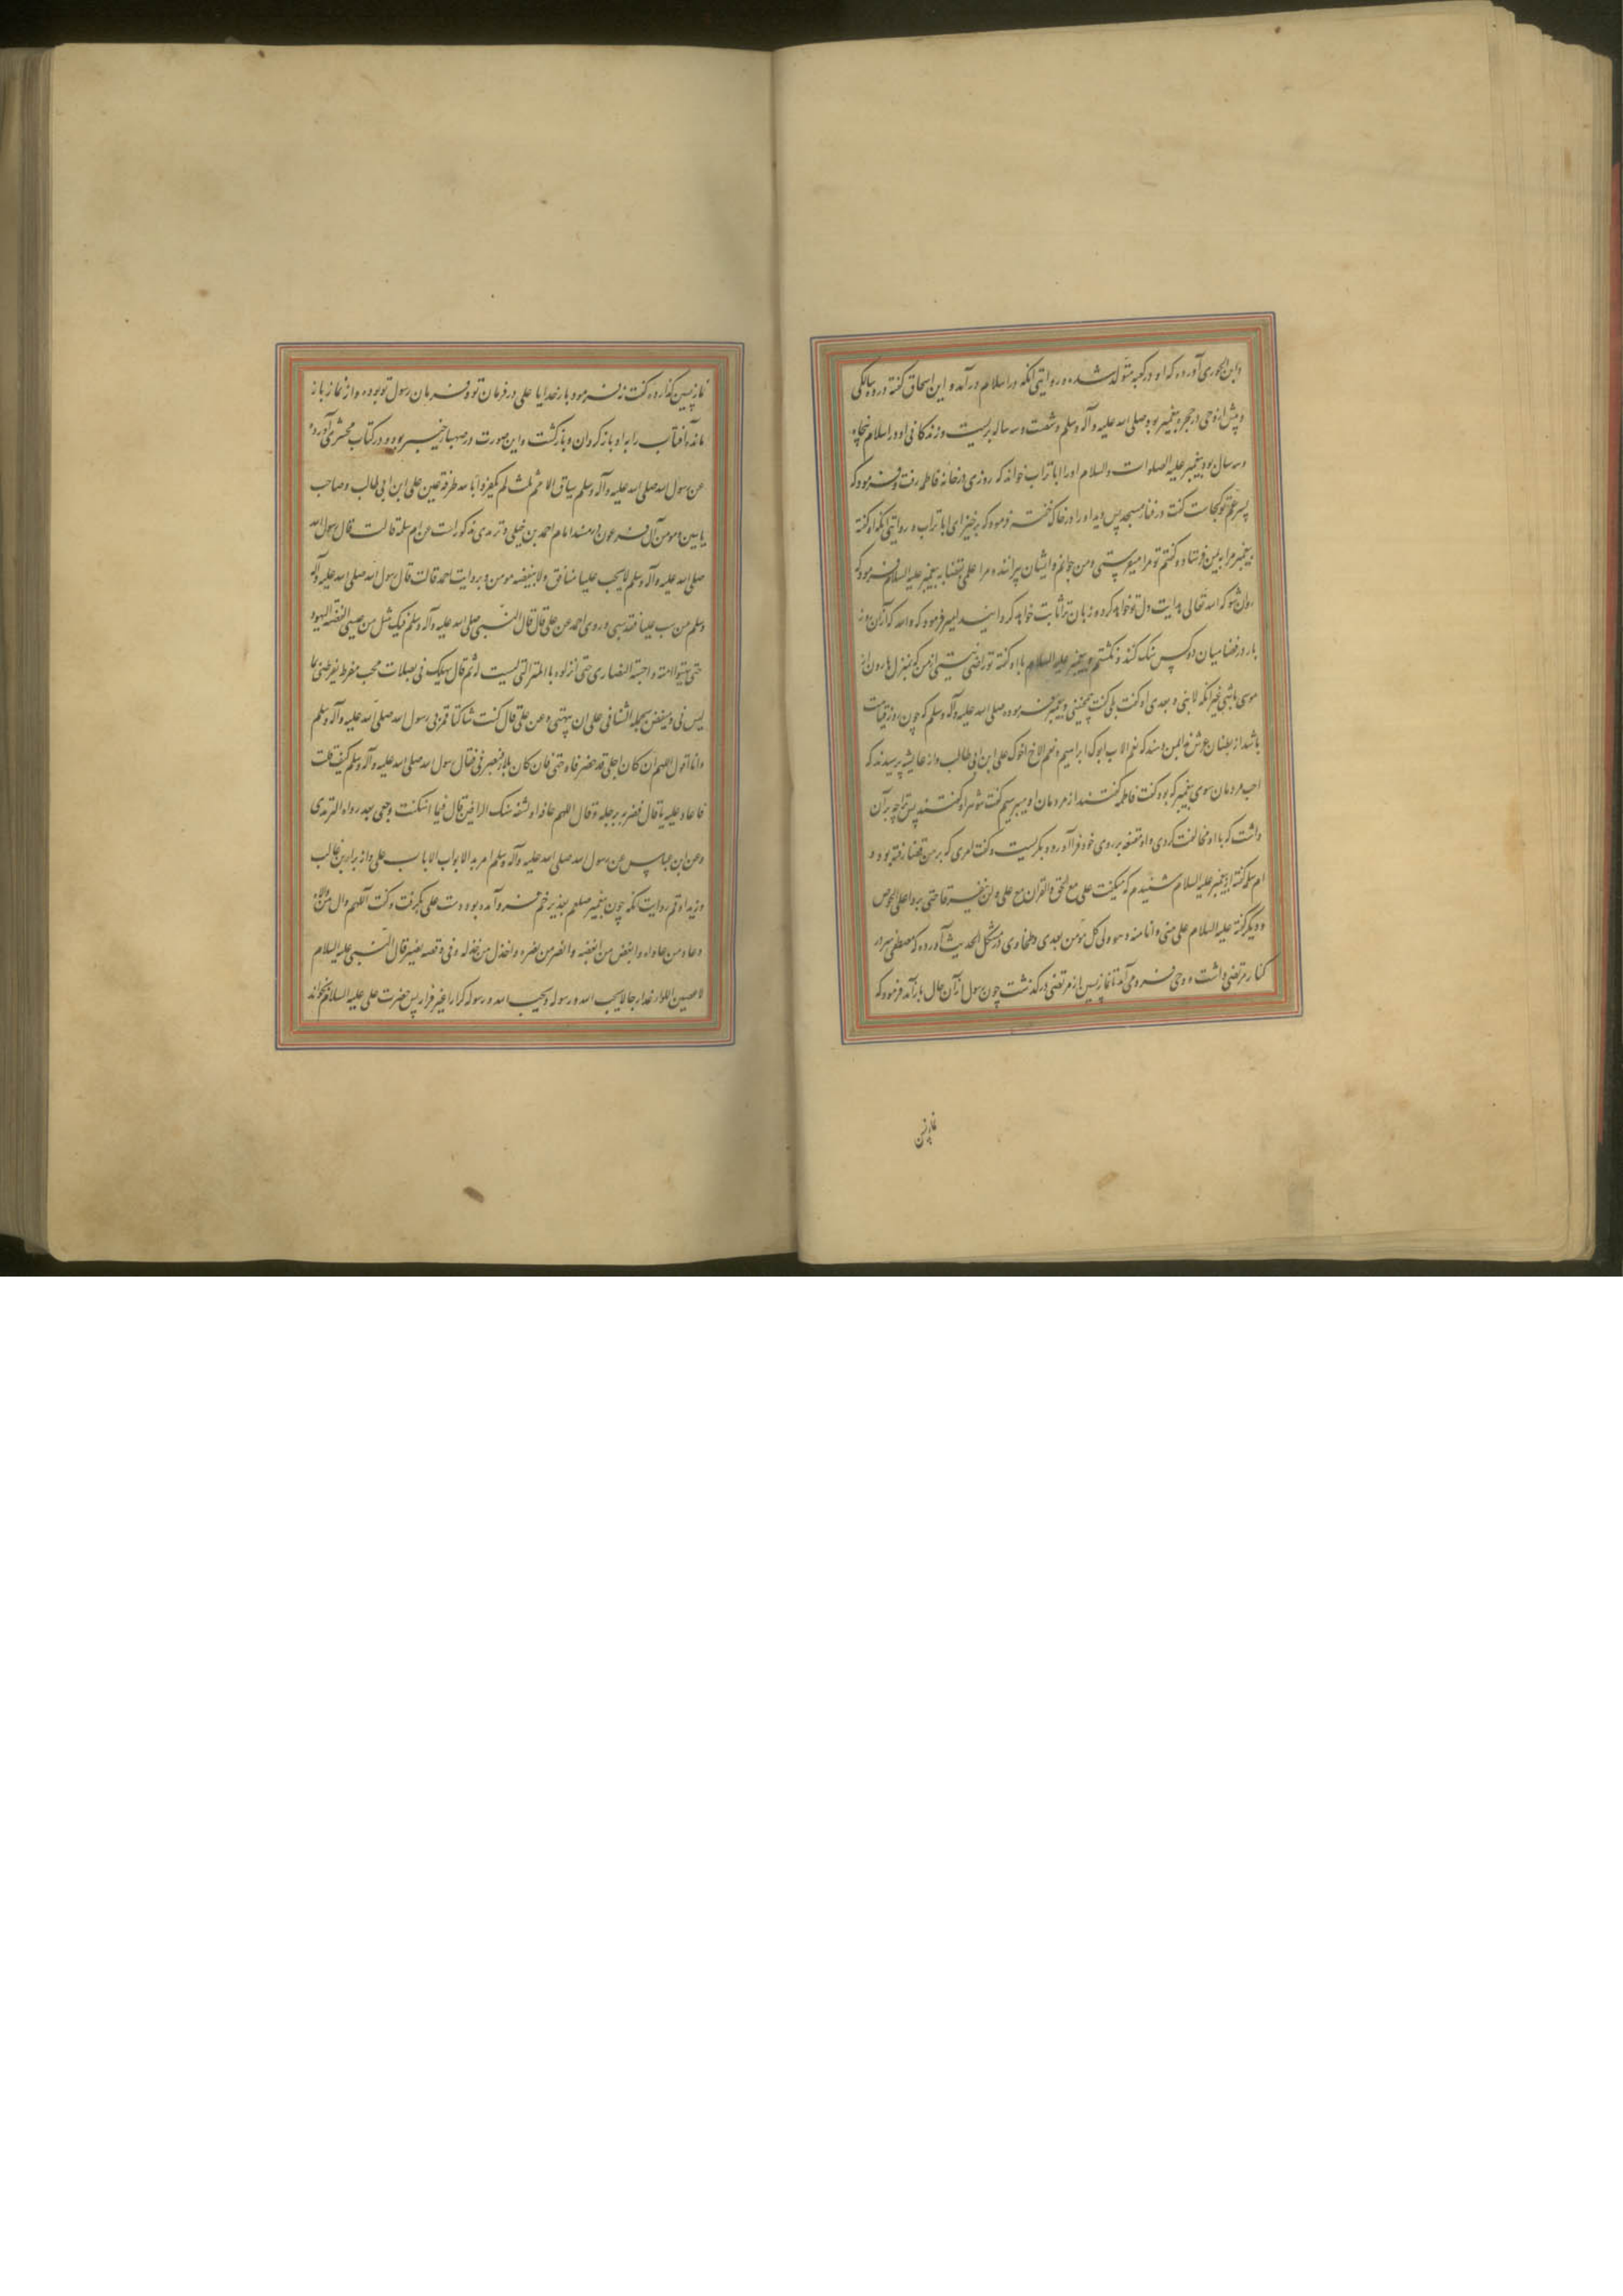 وابن الجوزی آورده که او در کعبه متولد شده و روایتی آنکه در اسلام درآمد و ابن اسحاق گفته در ده سالگی
و پیش از وحی در حجر پیغمبر بود صلی الله علیه وآله وسلم و شصت و سه ساله بزیست و زندگانی او در اسلام پنجاه
و سه سال بود پیغمبر علیه الصلوات والسلام او را اباتراب خواند که روزی در خانه فاطمه رفت و فرمود که
پسر عم تو کجاست گفت در فناء مسجد پس دید او را در خاک خفته فرمود که برخیز ای اباتراب و روایتی آنکه او گفته
پیغمبر مرا به یمن فرستاد و گفتم تو مرا میفرستی و من جوانم و ایشان پیرانند و مرا علمی بقضا نه پیغمبر علیه السلام فرمود که
روان شو که الله تعالی هدایت دل تو خواهد کرد و زبان ترا ثابت خواهد گردانید امیر فرمود که والله که از آن روز
باز در قضا میان دو کس شک نکردم و پیغمبر علیه السلام با او گفته تو راضی نیستی از من که بمنزل هارون از
موسی باشی غیر آنکه لا نبی بعدی او گفت بلی گفت همچنینی و پیغمبر فرموده صلی الله علیه وآله وسلم که چون روز قیامت
باشد از بطنان عرش ندا بمن رسد که نعم الاب ابوک ابراهیم و نعم الاخ اخوک علی ابن ابی طالب و از عایشه پرسیدند که
احب مردمان سوی پیغمبر که بود گفت فاطمه گفتند از مردمان او میپرسیم گفت شوهر او گفتند پس ترا چه بر آن
داشت که با او مخالفت کردی و او مقنعه بر روی خود فرا آورد و بگریست و گفت امری که بر من قضا رفته بود و
ام سلمه گفته از پیغمبر علیه السلام شنیدم که میگفت علی مع الحق والقران مع علی ولن یفترقا حتی یردا علی الحوض
و دیگر گفته علیه السلام علی منی وانا منه وهو ولی کل مومن بعدی و طحاوی در مشکل الحدیث آورده که مصطفی سر در
کنار مرتضی داشت و وحی فرو می آمد تا نماز پسین از مرتضی درگذشت چون رسول از آن حال باز آمد فرمود که
نماز پسین
نماز پسین گذارده گفت نه فرمود بار خدایا علی در فرمان تو و فرمان رسول تو بوده و از نماز باز
مانده آفتاب را به او باز گردان و بازگشت و این صورت در صهباء خیبر بود و در کتاب محشری آورده
عن رسول الله صلی الله علیه وآله وسلم سباق الامم ثلث لم یکفروا بالله طرفة عین علی ابن ابی طالب وصاحب
یاسین ومومن آل فرعون در مسند امام احمد بن حنبلی و ترمدی مذکور است عن ام سلمة قالت قال رسول الله
صلی الله علیه وآله وسلم لا یحب علیا منافق ولا یبغضه مومن و بروایت احمد قالت قال رسول الله صلی الله علیه وآله
وسلم من سب علیا فقد سبنی وروی احمد عن علی قال قال النبی صلی الله علیه وآله وسلم فیک مثل من عیسی ابغضه الیهود
حتی بهتوا امه واحبته النصاری حتی انزلوه بالمنزلة التی لیست له ثم قال یهلک فی رجلان محب مفرط یقرظنی بما
لیس فی ومبغض یحمله الشنانی علی ان یبهتنی وعن علی قال کنت شاکیا فمر بی رسول الله صلی الله علیه وآله وسلم
وانا اقول اللهم ان کان اجلی قد حضر فان کان بلاء فصبرنی فقال رسول الله صلی الله علیه وآله وسلم کیف قلت
فاعاد علیه ما قال فضربه برجله وقال اللهم عافه او اشفه شک الراوی قال فما اشتکیت وجعی بعد رواه الترمدی
وعن ابن عباس عن رسول الله صلی الله علیه وآله وسلم امر بسد الابواب الا باب علی و از براء بن عازب
و زید ارقم روایت آنکه چون پیغمبر صلعم بغدیر خم فرو آمده بود دست علی بگرفت و گفت اللهم وال من والاه
وعاد من عاداه وابغض من ابغضه وانصر من نصره واخذل من خذله وفی قصه خیبر قال النبی علیه السلام
لاعطین اللواء غدا رجلا یحب الله ورسوله ویحبه الله ورسوله کرارا غیر فرار پس حضرت علی علیه السلام بخواند